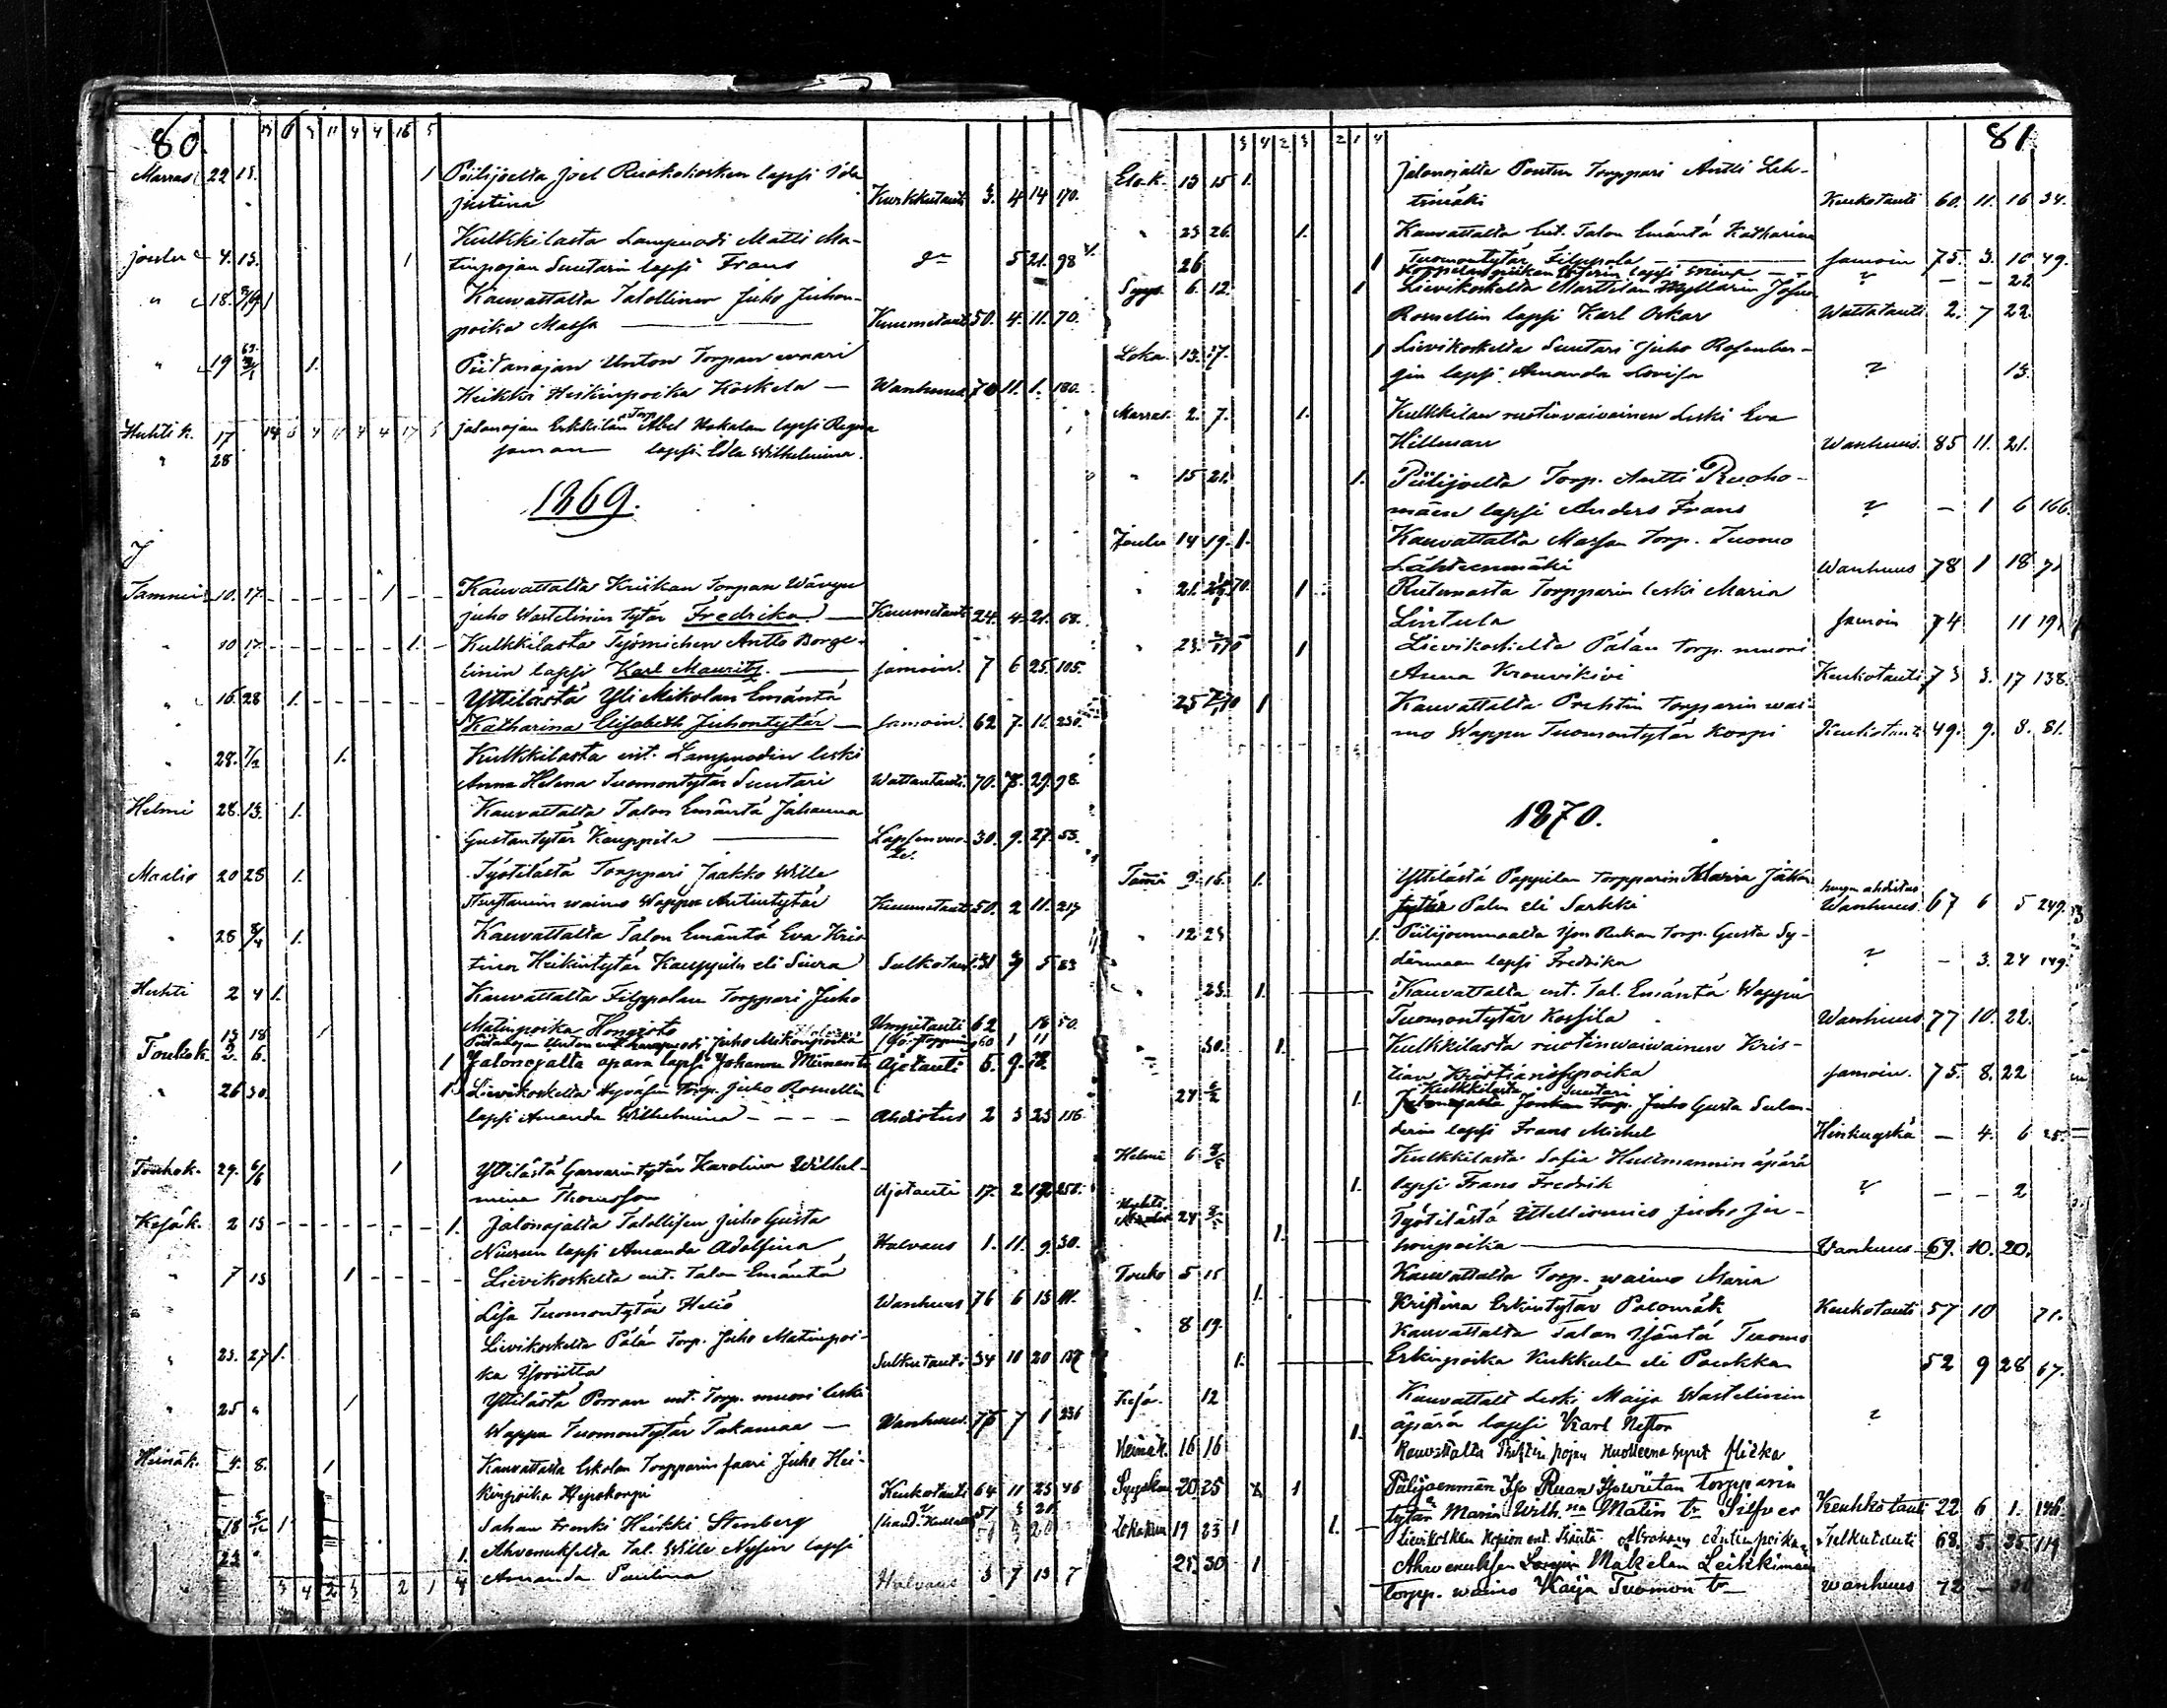 80.
13 6 3 11 4 4 16 5
Marras 22 13. 1 Piilijoelta Joel Ruohokosken lapsi Ida
Justina Kurkkutauti 3. 4 14 170.
Kulkkilasta Lampuodi Matti Ma-
Joulu 4. 13. 1 tinpojan Suutarin lapsi Frans d:o 5 21. 98
" 18. 1 Kauvattalta Talollinen Juho Juhon-
poika Massa Kuumetauti 50. 4. 11. 70.
" 19 1. Piitanojan Unton Torpan vaari
Heikki Heikinpoika Koskela — Wanhuus 70 11. 1. 180.
Huhti k. 17 14 6 4 11 4 4 17 5 Jalonojan Erkkilän Torp. Abel Hakalan lapsi Regina
" 28 saman lapsi Edla Wilhelmina.
1869.
Tammi 10. 17. 1 Kauvattalta Kriikan Torpan Wävyn
Juho Wastelinin tytär Fredrika — Kuumetauti 24. 4. 21. 68.
" 10 17. 1. Kulkkilasta Työmiehen Antto Borge-
linin lapsi Karl Mauritz. samoin. 7 6 25. 105.
" 16. 28 1. Yttilästä Yli Mikolan Emäntä
Katharina Elisabeth Juhontytär — samoin. 62 7. 11. 230.
" 28. 7/2 1. Kulkkilasta ent. Lampuodin leski
Anna Helena Tuomontytär Suutari Wattantauti 70. 7. 29. 98.
Helmi 28. 13. 1. Kauvattalta Talon Emäntä Johanna
Gustantytär Kauppila Lapsenvuode. 30. 9. 27. 53.
Maalis 20 28 1. Työtilästä Torppari Jaakko Wille
waimo Wappu Antintytär Kuumetauti 50. 2 11. 217
" 28 8/4 1. Kauvattalta Talon Emäntä Eva Kris
tina Heikintytär Kauppila eli Seura Sulkotauti 31 9 5 53
Huhti 2 4 1. Kauvattalta Filppolan Torppari Juho
Matinpoika Hongisto Umpitauti 62 18 50.
13 18 1 Piitanojan Unton ent. Lampuodi Juho Mikonpoika 60 1 11
Toukok. 2. 6. 1 Jalonojalta äpärä lapsi Johanna Miinanta Ajotauti 5. 9. 18.
" 26 30. 1. Lievikoskelta Hyväsen Torp. Juho Rosnellin
lapsi Amanda Wilhelmina - - - - Ahdistus 2 3 23 116
Toukok. 29. 6/6 1 Yttilästä Garvarintytär Karolina Wilhel-
mina Thomsson Ajotauti 17. 2 19. 258.
Kesäk. 2 13 1. Jalonojalta Talollisen Juho Gusta
Niuren lapsi Amanda Adolfina Halvaus 1. 11. 9. 30.
" 7 13 1 Lievikoskelta ent. Talon Emäntä
Lisa Tuomontytär Heliö Wanhuus 76 6 13 111.
" 23. 27 1. Lievikoskelta Pälän Torp. Juho Matinpoi-
ka Sulkutauti 34 11 20 137
" 25 " 1 Yttilästä Porran ent. Torp. muori leski
Wappu Tuomontytär Takamaa — Wanhuus. 75 7 1 236
Heinäk. 4. 8. 1 Kauvattalta Eskolan Torpparin faari Juho Hei-
kinpoika Hepokorpi Keuhkotauti 64 11 25 46
" 18 1 Sahan trenki Heikki Stenberg 51 5 20
22 " 1. Ahvenuksilta Tal. Wille Nysin lapsi
Amanda Paulina Halvaus 3 7 13 7
3 4 2 3 2 1 4
81.
3 4 2 3 2 1 4
Elo k. 13 15 1. Jalonojalta Pontun Torppari Antti Leh-
timäki Keuhkotauti 60. 11. 16 34.
" 23 26. 1. Kauvattalta Ent. Talon Emäntä Katharina
26 1 Tuomontytär Filppola — samoin 75. 3. 10 49.
Syys. 6. 12. 1 Lievikoskelta Marttilan Myllärin Josua
Rosnellin lapsi Karl Oskar Wattatauti 2. 7 22.
Loka. 13. 17. 1 Lievikoskelta Suutari Juho Rosenber-
gin lapsi Amanda Lovisa ? 13.
Marras. 2. 7. 1. Kulkkilan ruotivaivainen Leski Eva
Hillman Wanhuus. 85 11. 21.
" 15 21. 1. Piilijoelta Torp. Antti Ruoho-
mäen lapsi Anders Frans ? — 1 6 166.
Joulu 14 19. 1. Kauvattalta Massan Torp. Tuomo
Lähteenmäki Wanhuus 78 1 18 71
" 21. 70. 1 Ristemasta Torpparin leski Maria
Lintula samoin 74 11 191
" 23. 1 Lievikoskelta Pälän Torp. muori
Anna Krouvikivi Keuhkotauti 73 3. 17 138.
25 1 Kauvattalta Prehtin Torpparin wai-
mo Wappu Tuomontytär Korpi Keuhkotauti 49. 9. 8. 81.
1870.
Tammi 9. 16. 1. Yttilästä Pappilan Torpparin Maria Jaakon
tytär Palu eli Sarkki hengen ahdistus Wanhuus 67 6 5 249.
" 12 23 1. Piilijoenmaalta Ison Ruhan Torp. Gusta Sy-
dänmaan lapsi Fredrika ? — 3. 24 149.
" 23. 1. Kauvattalta ent. Tal. Emäntä Wappu
Tuomontytär Kossila Wanhuus 77 10. 22.
" 30. 1. Kulkkilasta ruotinwaiwainen Kris-
tian Kristiansopoika samoin. 75. 8. 22
24 6/2 1. Kulkkilasta Suutari Juho Gusta Sulan-
derin lapsi Frans Michel Hinkuyskä — 4. 6 25.
Helmi 6 Kulkkilasta Sofia Hultmannin äpärä
1. lapsi Frans Fredrik ? — — 2
Huhti 24 1. Työtilästä Itsellismies Juho Ju-
honpoika Wanhuus 69. 10. 20.
Touko 5 15 1. Kauvattalta Torp. waimo Maria
Kristina Erkintytär Palomäk Keuhkotauti 57 10 71.
" 8 19. 1. Kauvattalta Talon Isäntä Tuomo
Erkinpoika Kukkula eli Paukka 52 9 28 67.
Kesä. 12 Kauvattalt Leski Maija Wastelinin
1. äpärä lapsi Karl Nestor ?
Heinäk. 16 16 Kauvattalta pojan kuolleena synt flicka
Syysk. 20. 25 1 Piilijoenmän Iso Ruan Torpparin
tytär Maria Wilh:na Matin tr Silfver Keuhkotauti 22 6 1. 146.
Lokakuu 19 23 1 1. Lievikosken ent. Isäntä Abraham Antinpoika Sulkutauti 68. 5. 25 119
25. 30 1 Ahvenuksen Mäkelän Leikkimaan
Torpp. waimo Kaija Tuomon tr — Wanhuus 72 —